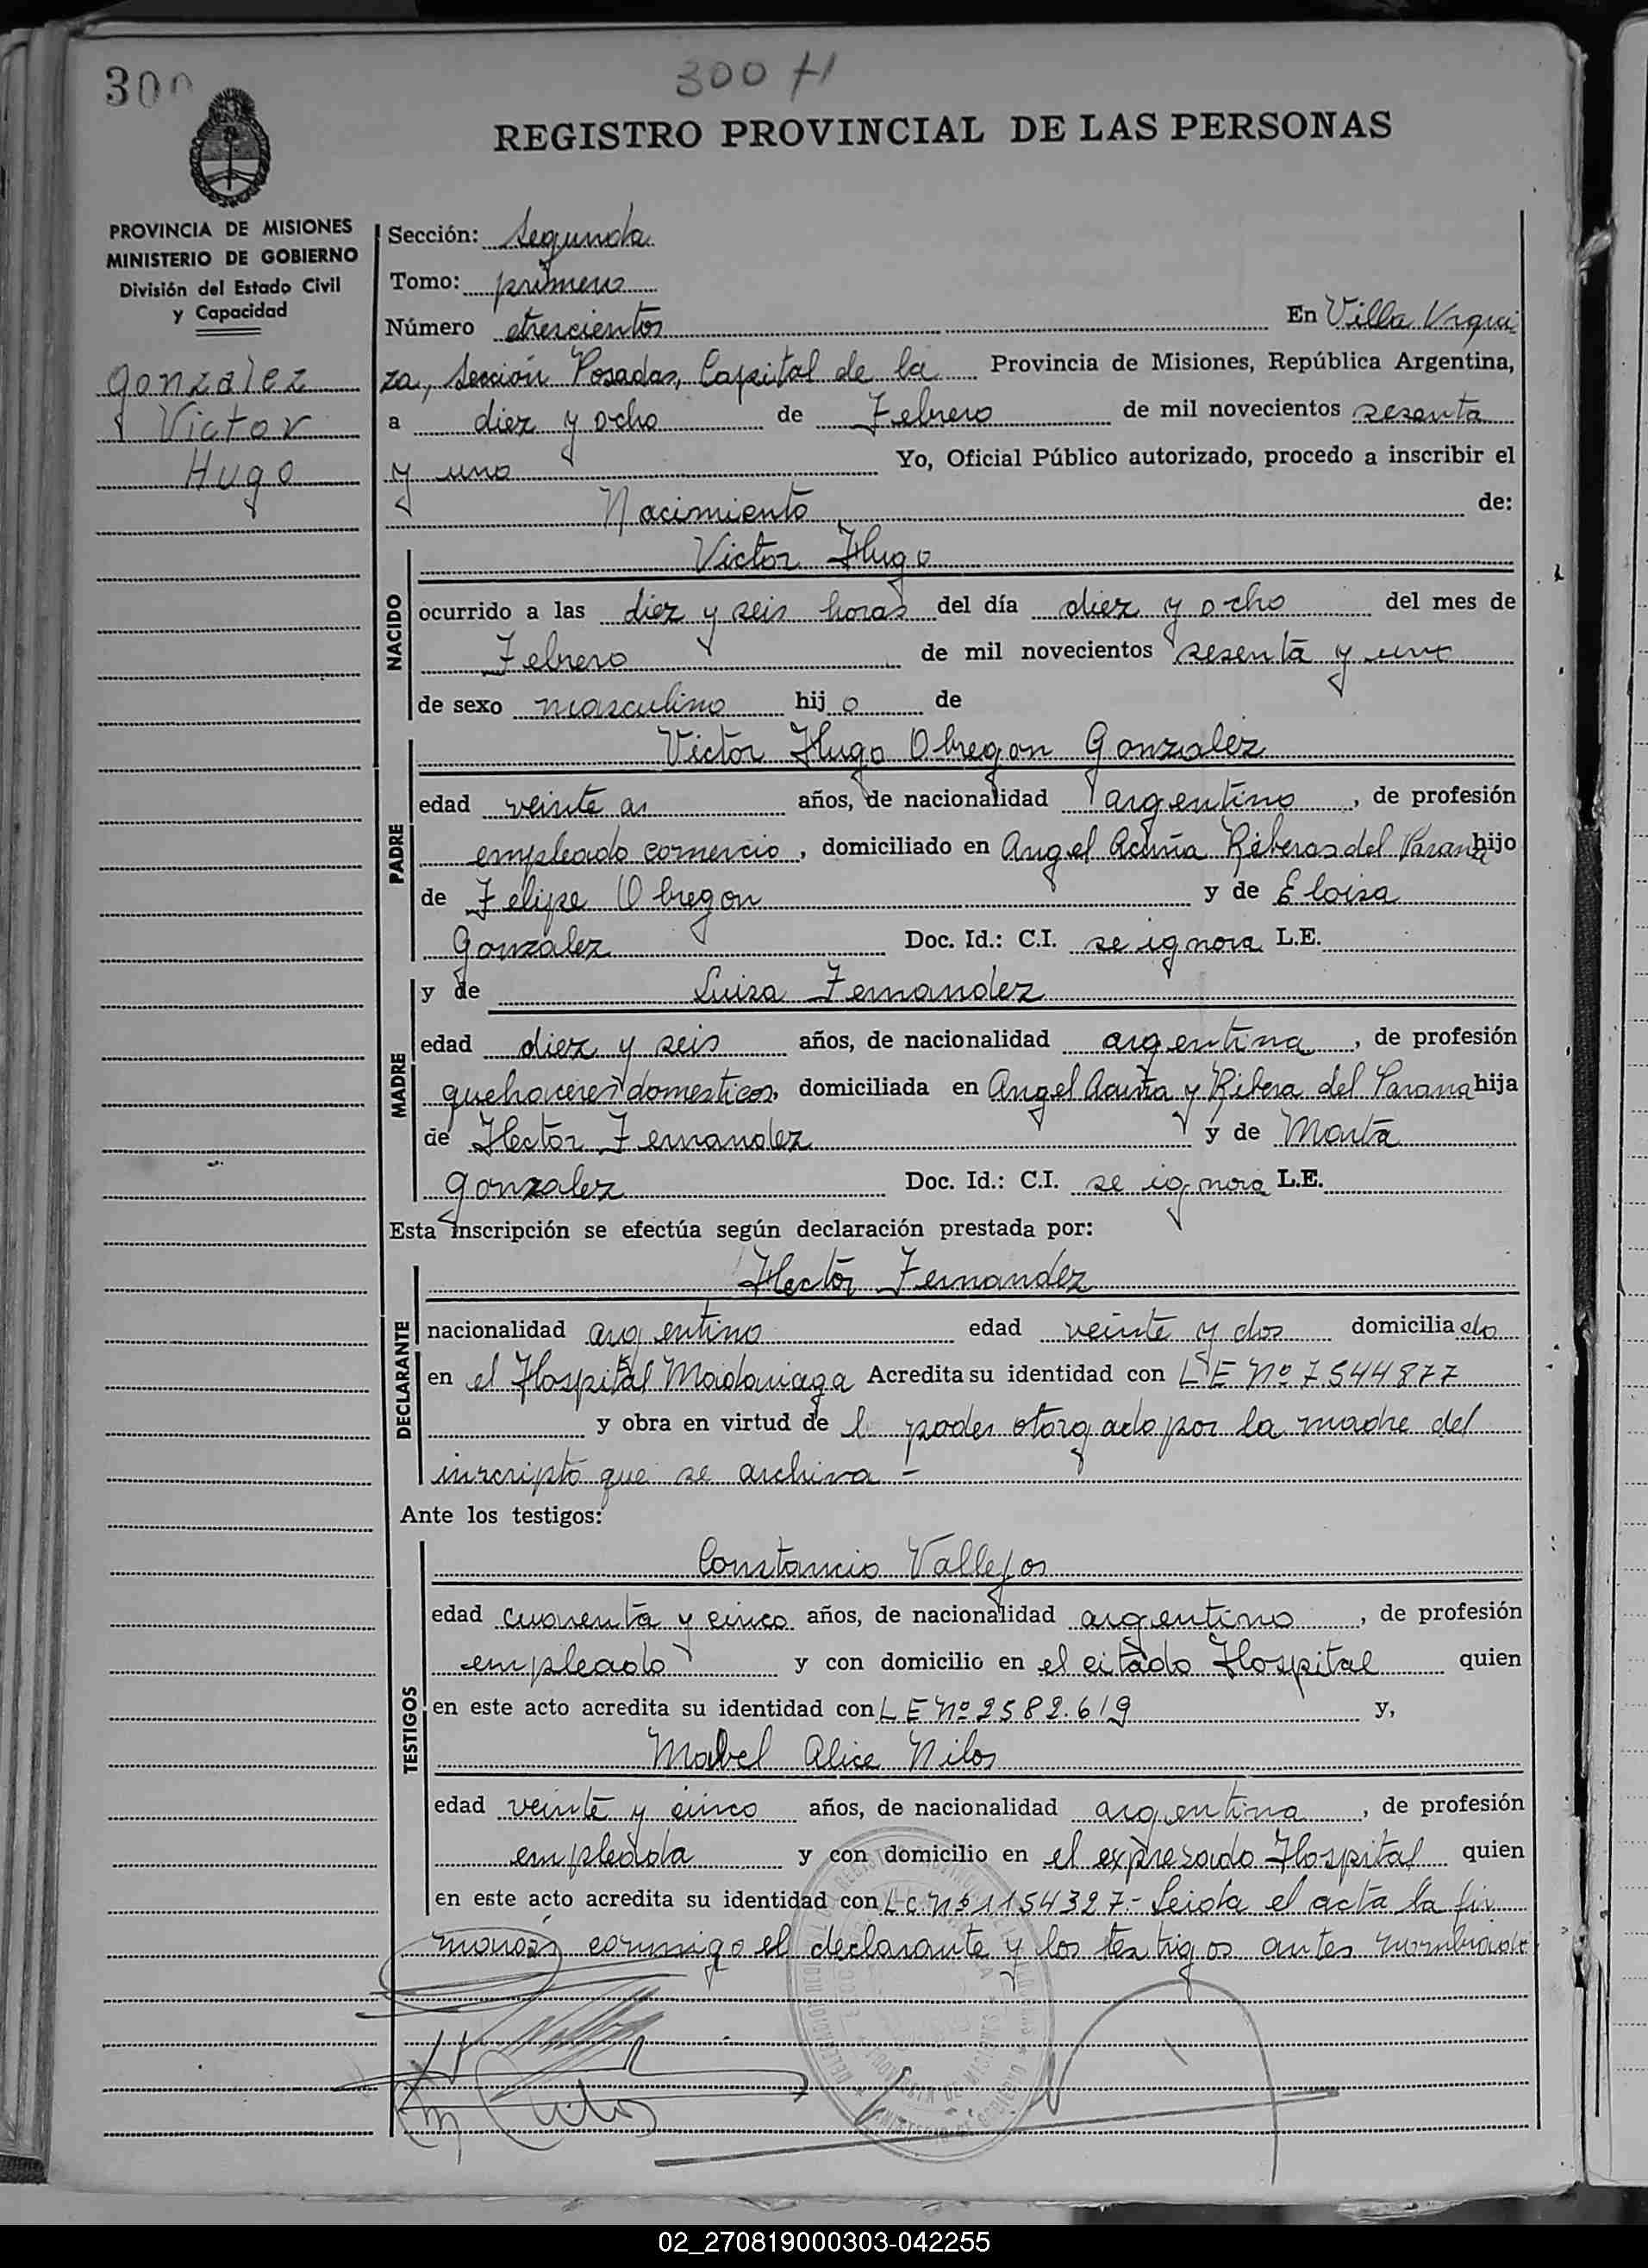 300
300 H
REGISTRO PROVINCIAL DE LAS PERSONAS
PROVINCIA DE MISIONES
MINISTERIO DE GOBIERNO
División del Estado Civil
y Capacidad
Gonzalez
Victor
Hugo
Sección: Segunda
Tomo: primero
Número trescientos En Villa Urqui
za, Sección Posadas, Capital de la Provincia de Misiones, República Argentina,
a diez y ocho de Febrero de mil novecientos sesenta
y uno Yo, Oficial Público autorizado, procedo a inscribir el
Nacimiento de:
NACIDO
Victor Hugo
ocurrido a las diez y seis horas del día diez y ocho del mes de
Febrero de mil novecientos sesenta y uno
de sexo masculino hij o de
PADRE
Victor Hugo Obregon Gonzalez
edad veinte años, de nacionalidad argentino, de profesión
empleado comercio, domiciliado en Angel Acuña Riberas del Parana hijo
de Felipe Obregon y de Eloisa
Gonzalez Doc. Id.: C.I. se ignora L.E.
MADRE
y de Luisa Fernandez
edad diez y seis años, de nacionalidad argentina, de profesión
quehaceres domesticos, domiciliada en Angel Acuña y Ribera del Parana hija
de Hector Fernandez y de Marta
Gonzalez Doc. Id.: C.I. se ignora L.E.
Esta inscripción se efectúa según declaración prestada por:
DECLARANTE
Hector Fernandez
nacionalidad argentino edad veinte y dos domicilia do
en el Hospital Madariaga Acredita su identidad con L E Nº 7.544877
y obra en virtud de poder otorgado por la madre del
inscripto que se archiva -
Ante los testigos:
TESTIGOS
Constancio Vallejos
edad cuarenta y cinco años, de nacionalidad argentino, de profesión
empleado y con domicilio en el citado Hospital quien
en este acto acredita su identidad con L E Nº 2582.619 y,
Mabel Alice Nilos
edad veinte y cinco años, de nacionalidad argentina, de profesión
empleada y con domicilio en el expresado Hospital quien
en este acto acredita su identidad con L C. Nº 1154327.- Leida el acta la fir
maron conmigo el declarante y los testigos antes nombrados
02_270819000303-042255